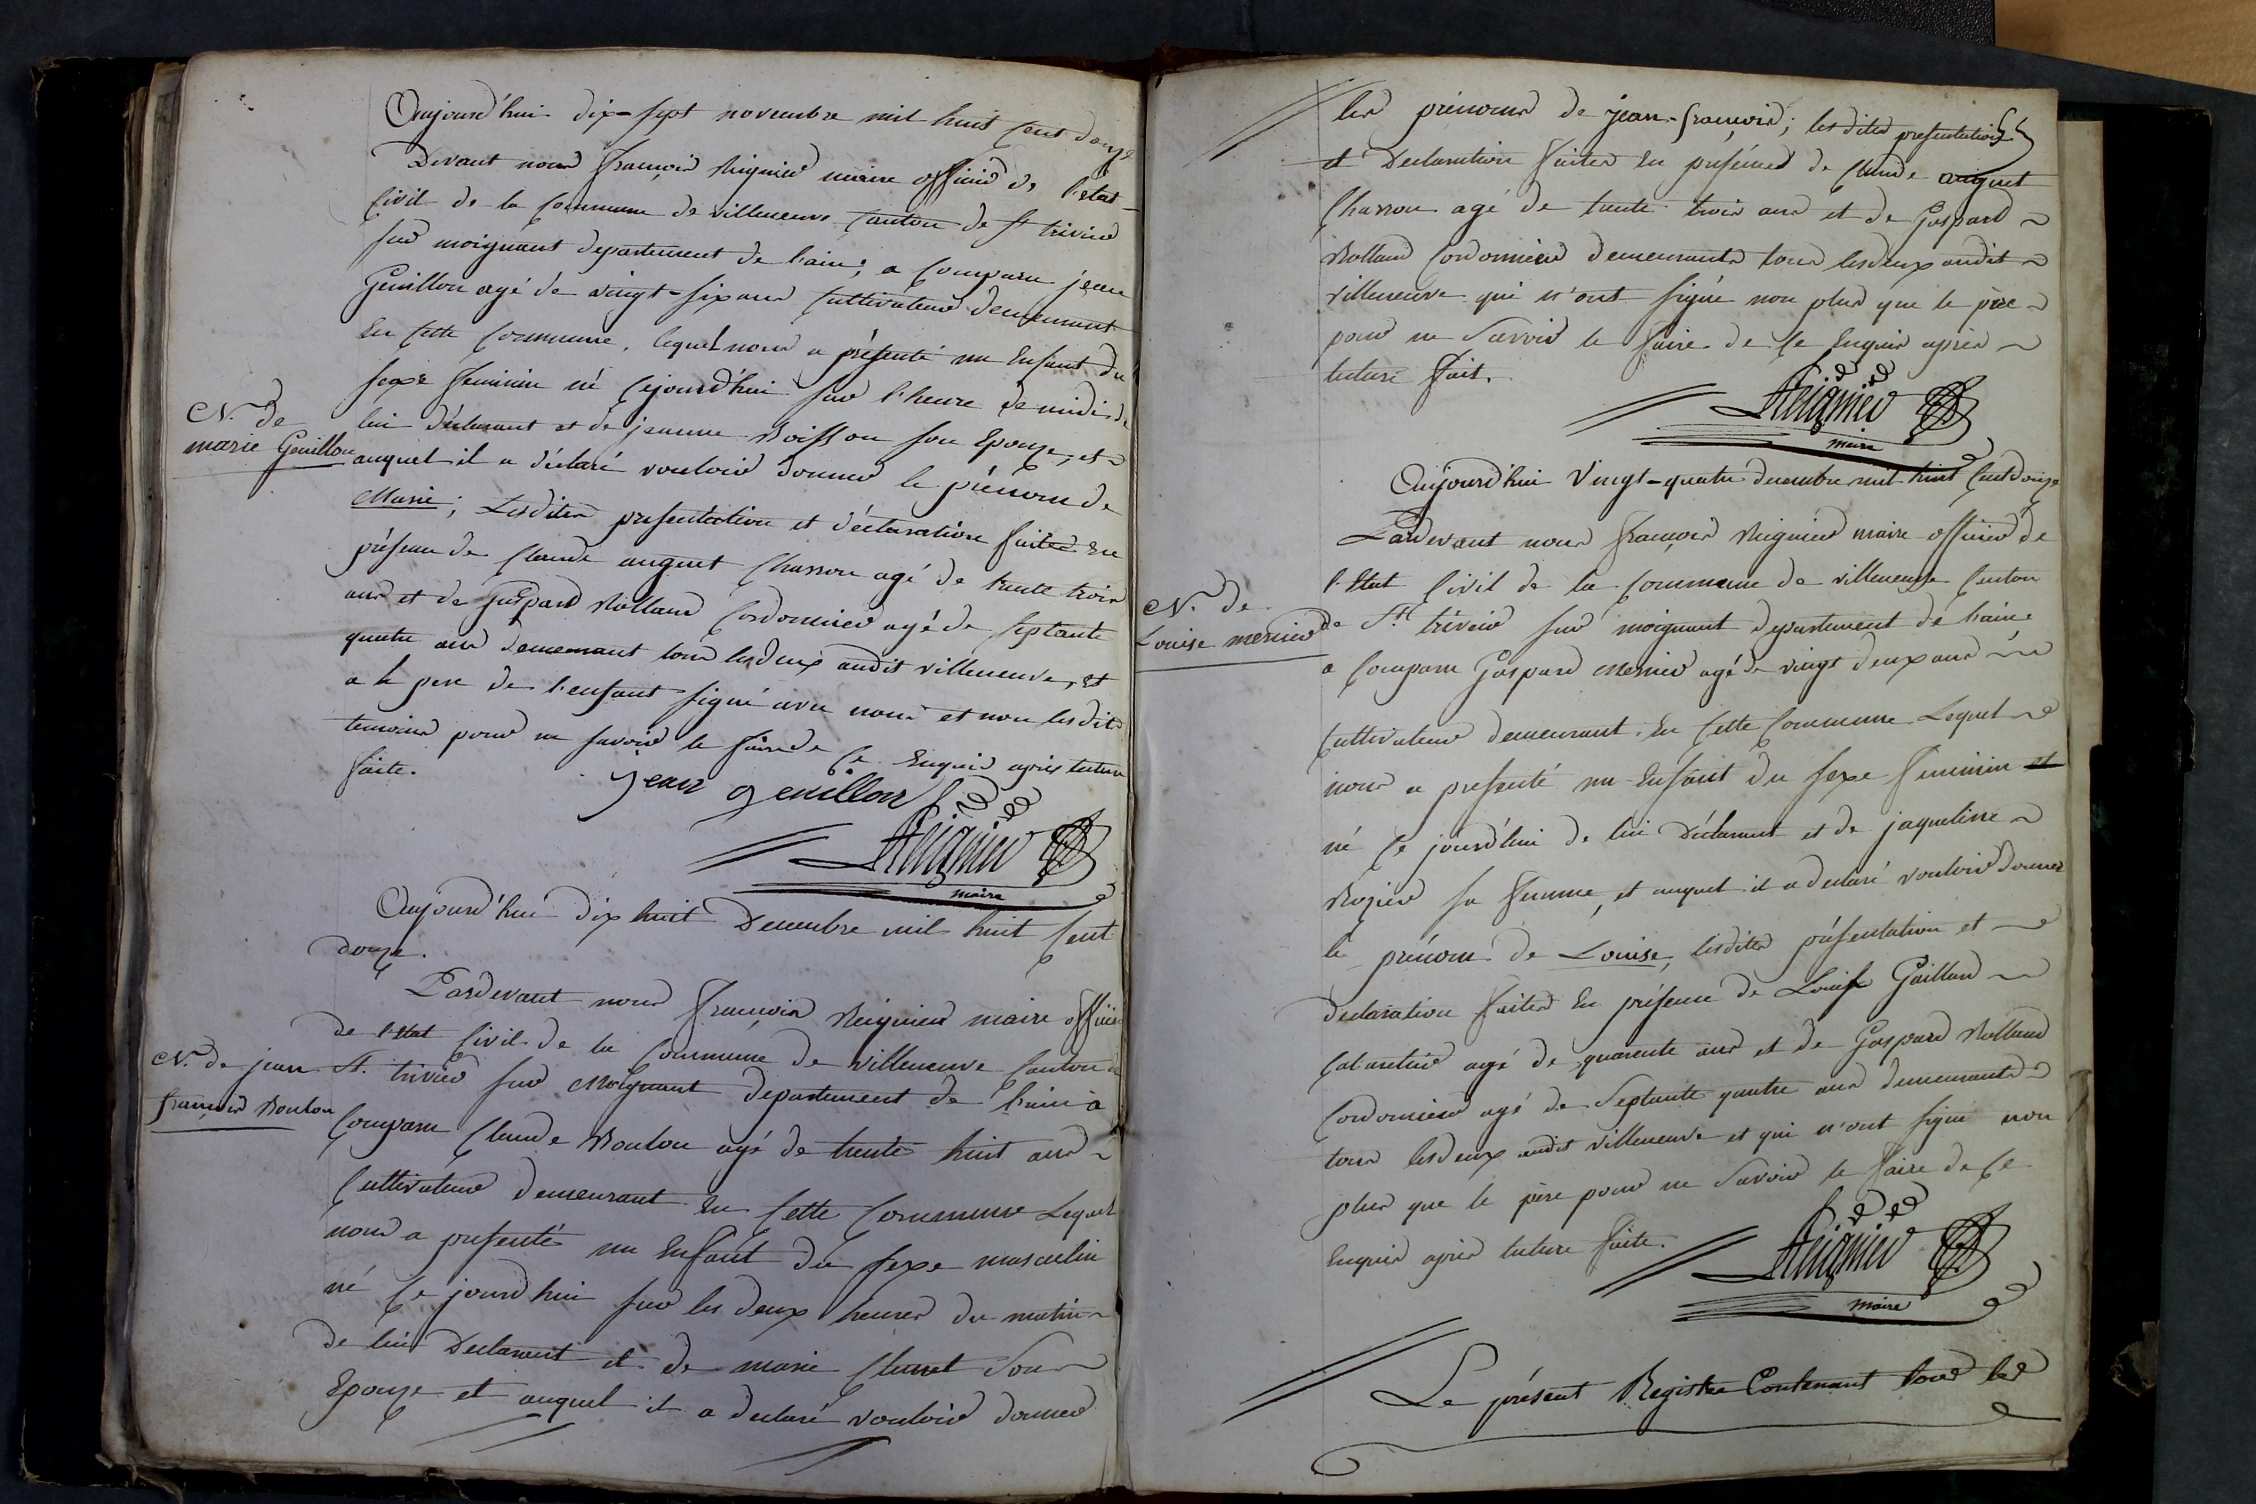 Aujourd'hui dix-sept novembre mil huit cent douze
Devant nous françois Reignier maire officier de l'etat
Civil de la Commune de villeneuve Canton de St trivier
sur moignant departement de l'ain; a Comparu jean
Genillon agé de vingt-six ans Cultivateur demeurant
En Cette Commune, lequel nous a présenté un Enfant du
sexe feminin né Cejourd'hui sur l'heure de midi de
N. de
marie Genillon
lui déclarant et de jeanne Boisson son Epouze, et
auquel il a déclaré vouloir donner le prénom de
Marie; Lesdites presentation et déclaration faites En
présence de Claude auguet Charron agé de trente trois
ans et de Gaspard Rolland Cordonnier agé de septante
quatre ans demeurant tous lesdeux audit villeneuve, Et
a le pere de l'enfant signé avec nous et non lesdits
temoins pour ne savoir le faire de Ce Enquis après lecture
faite.
jean genillon
Reignier
maire
Aujourd'hui dix huit Decembre mil huit Cent
douze.
Pardevant nous françois Reignier maire officier
de l'etat Civil de la Commune de villeneuve Canton de
N. de jean
françois Bouton
St. trivier sur Moignant departement de l'ain a
Comparu Claude Bouton agé de trente huit ans
Cultivateur demeurant En Cette Commune Lequel
nous a presenté un Enfant du sexe masculin
né Ce jourd'hui sur les deux heures du matin
de lui Declarant et de marie Son
Epouze et auquel il a declaré vouloir donner
les prénoms de jean-françois; lesdites presentation
et Declaration faites En présence de Claude auguet
Charron agé de trente trois ans et de Gaspard
Rolland Cordonnier demeurants tous lesdeux audit
villeneuve qui n'ont signé non plus que le père
pour ne Savoir le faire de Ce Enquis après
lecture fait.
Reignier
maire
Aujourd'hui Vingt-quatre decembre mil huit Cent douze
Pardevant nous françois Reignier maire officier de
l'Etat Civil de la Commune de villeneuve Canton
N. de
Louise mernier
de St trivier sur moignant departement de l'ain
a Comparu Gaspard Mernier agé de vingt deux ans
Cultivateur demeurant En Cette Commune Lequel
nous a presenté un Enfant du sexe feminin et
né Ce jourd'hui de lui Déclarant et de jaqueline
Rozier sa femme, et auquel il a declaré vouloir donner
le prénom de Louise, lesdites présentation et
declaration faites En présence de Louis Gaillard
agé de quarente ans et de Gaspard Rolland
Cordonnier agé de Septante quatre ans demeurants
tous lesdeux audit villeneuve et qui n'ont signé non
plus que le père pour ne Savoir le faire de Ce
Enquis après lecture faite.
Reignier
maire
Le présent Registre Contenant tous les